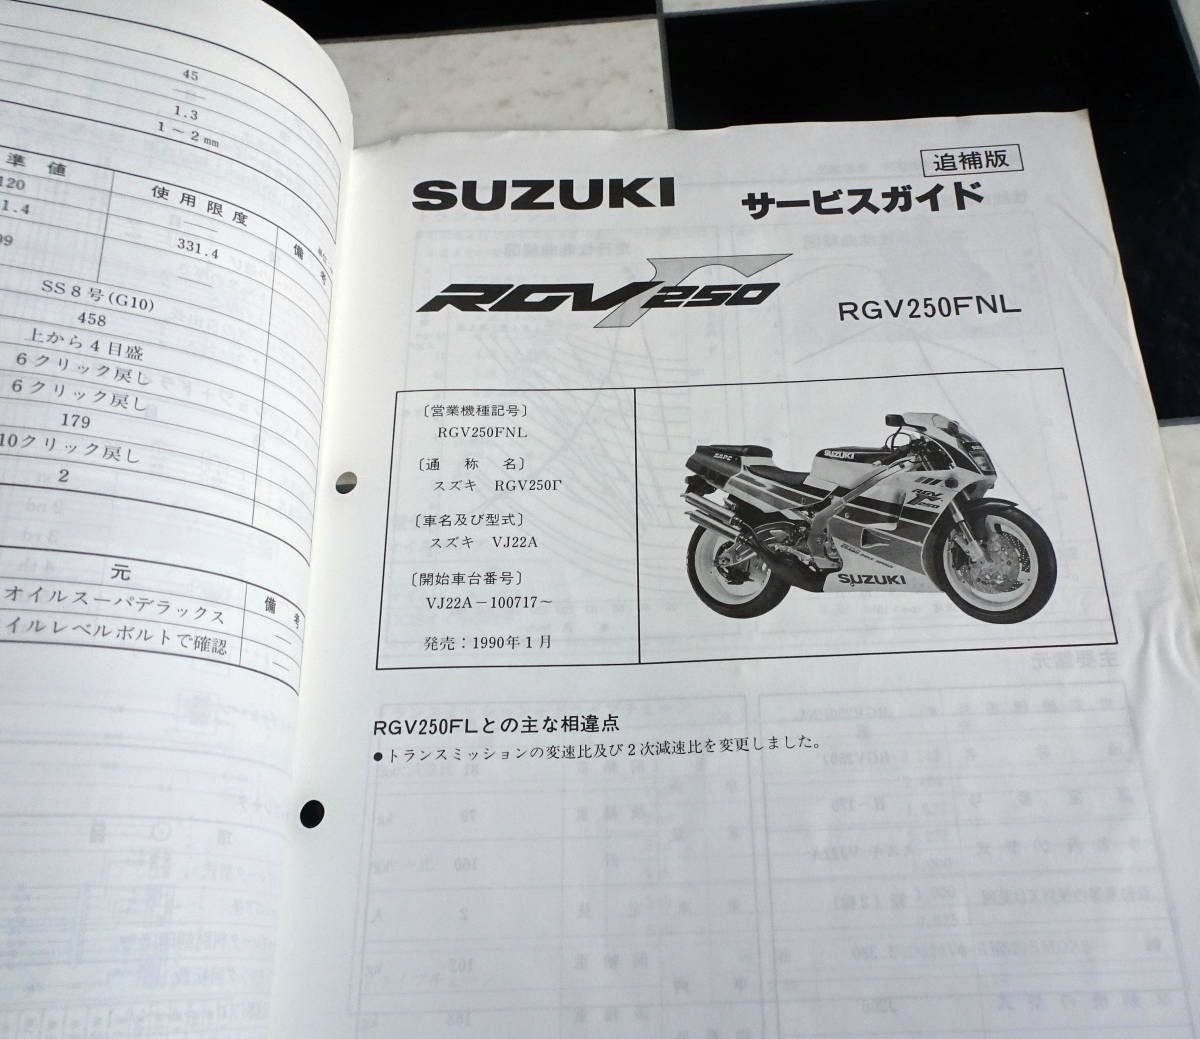 45
1.3
1～2mm
準 値
使用限度
備考
120
1.4
331.4
99
SS8号(G10)
458
上から4目盛
6クリック戻し
6クリック戻し
179
10クリック戻し
2
元
備考
オイルスーパデラックス
イルレベルボルトで確認
追補版
SUZUKI サービスガイド
RGVΓ250
RGV250FNL
〔営業機種記号〕
RGV250FNL
〔通 称 名〕
スズキ RGV250Γ
〔車名及び型式〕
スズキ VJ22A
〔開始車台番号〕
VJ22A－100717～
発売：1990年1月
SUZUKI
RGV
250
SUZUKI
RGV250FLとの主な相違点
●トランスミッションの変速比及び2次減速比を変更しました。